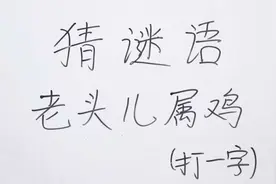 猜谜语
老头儿属鸡
(打一字)